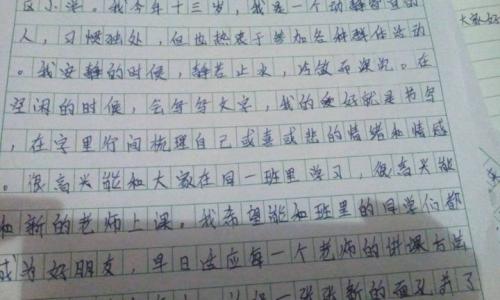 区小学。我今年十三岁，我是一个动静皆宜的
大家好
人，习惯独处，但也热衷于参加各种集体活动
。我安静的时候，静若止水，内敛而深沉。在
空闲的时候，会写写文字，我的爱好就是书写
，在字里行间梳理自己或喜或悲的情绪和情感
。很高兴能和大家在同一班里学习，很高兴能
和新的老师上课。我希望能和班里的同学们都
成为好朋友，早日适应每一个老师的讲课方法
一张张新的面孔，我了